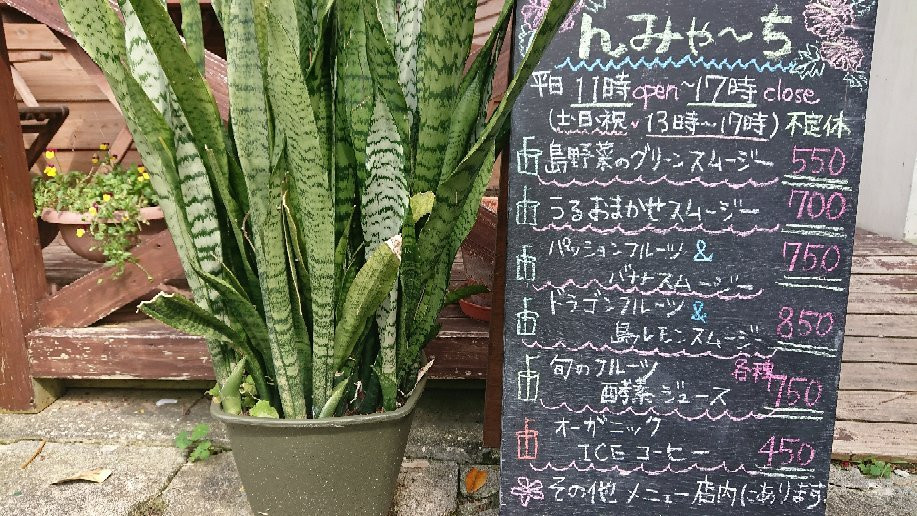 んみゃ〜ち
平日 11時open〜17時close
(土・日・祝、13時〜17時) 不定休
島野菜のグリーンスムージー 550
うるおまかせスムージー 700
パッションフルーツ &
バナナスムージー 750
ドラゴンフルーツ &
島レモンスムージー 850
旬のフルーツ 各種
酵素ジュース 750
オーガニック
ICEコーヒー 450
その他メニュー店内にあります